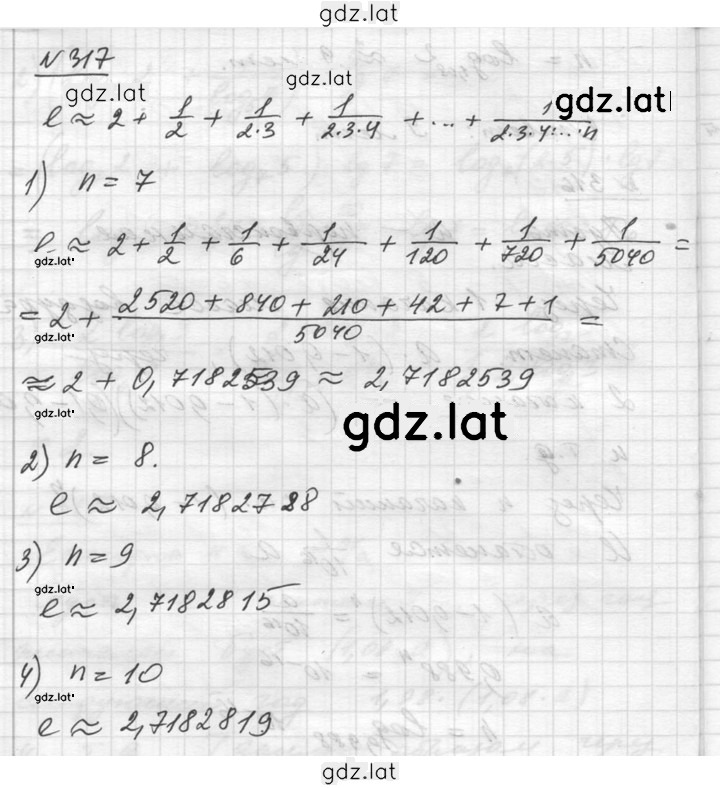 gdz.lat
N 317
gdz.lat
gdz.lat
gdz.lat
e ≈ 2 + 1/2 + 1/2·3 + 1/2·3·4 + ... + 1/2·3·4·...·n
1) n = 7
e ≈ 2 + 1/2 + 1/6 + 1/24 + 1/120 + 1/720 + 1/5040 =
gdz.lat
= 2 + 2520 + 840 + 210 + 42 + 7 + 1/5040 =
gdz.lat
≈ 2 + 0,7182539 ≈ 2,7182539
gdz.lat
gdz.lat
2) n = 8.
e ≈ 2,7182788
3) n = 9
gdz.lat
e ≈ 2,7182815
4) n = 10
gdz.lat
e ≈ 2,7182819
gdz.lat